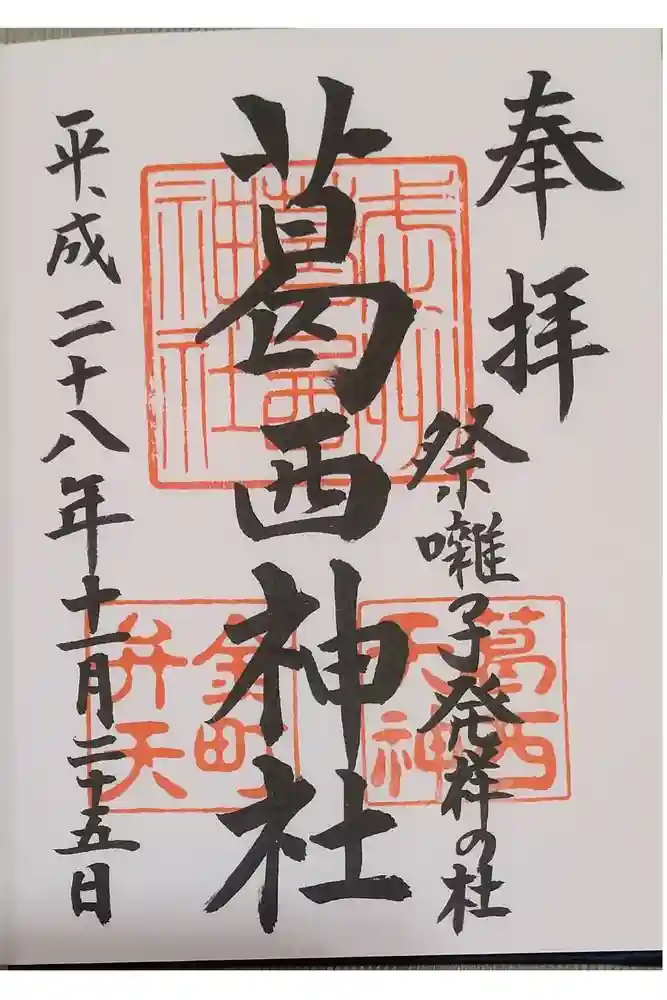 奉拝
祭囃子発祥の杜
葛西神社
平成二十八年十一月二十五日
葛西神社
葛西天神
金町弁天